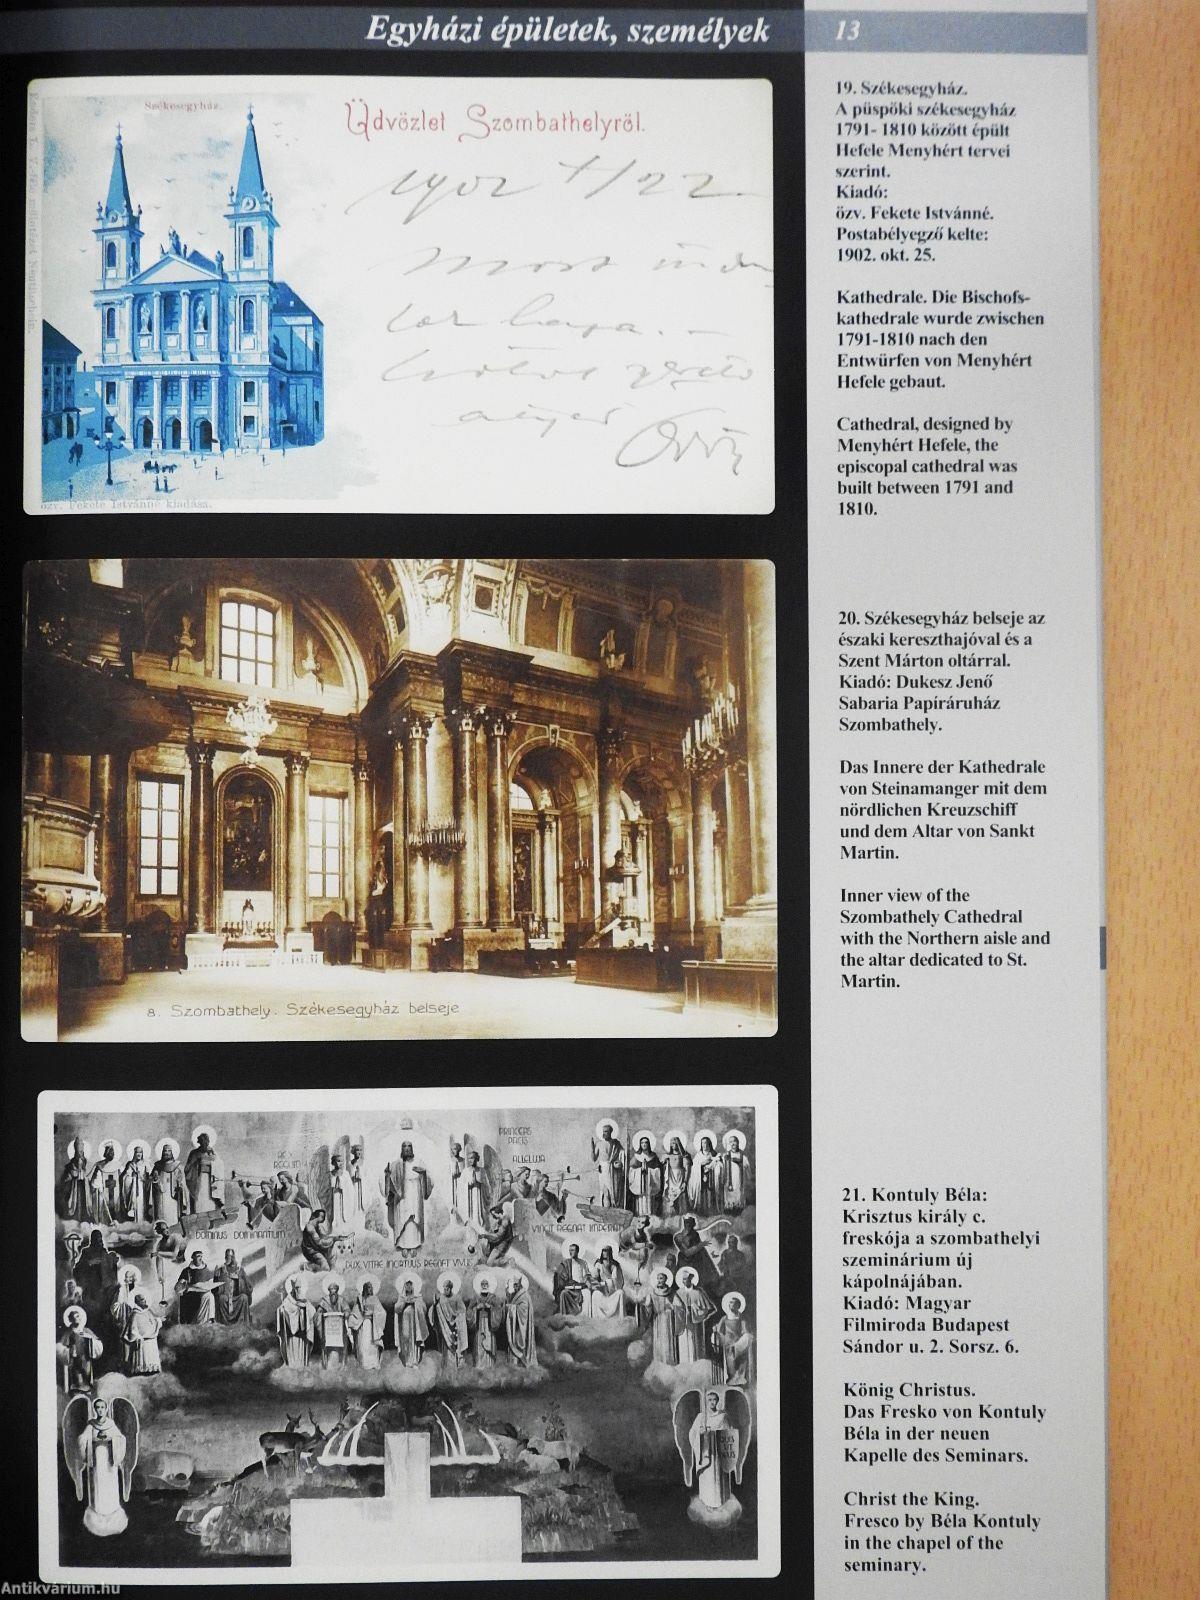 Egyházi épületek, személyek
13
Székesegyház.
Üdvözlet Szombathelyről.
1902 X/22
özv. Fekete Istvánné kiadása.
19. Székesegyház.
A püspöki székesegyház
1791- 1810 között épült
Hefele Menyhért tervei
szerint.
Kiadó:
özv. Fekete Istvánné.
Postabélyegző kelte:
1902. okt. 25.
Kathedrale. Die Bischofs-
kathedrale wurde zwischen
1791-1810 nach den
Entwürfen von Menyhért
Hefele gebaut.
Cathedral, designed by
Menyhért Hefele, the
episcopal cathedral was
built between 1791 and
1810.
8. Szombathely. Székesegyház belseje
20. Székesegyház belseje az
északi kereszthajóval és a
Szent Márton oltárral.
Kiadó: Dukesz Jenő
Sabaria Papíráruház
Szombathely.
Das Innere der Kathedrale
von Steinamanger mit dem
nördlichen Kreuzschiff
und dem Altar von Sankt
Martin.
Inner view of the
Szombathely Cathedral
with the Northern aisle and
the altar dedicated to St.
Martin.
PRINCEPS
PACIS
ALLELUJA
REX
REGUM
DOMINUS DOMINANTIUM
VINCIT REGNAT IMPERAT
DUX VITAE MORTUUS REGNAT VIVUS
QUIS
UT
DEUS
21. Kontuly Béla:
Krisztus király c.
freskója a szombathelyi
szeminárium új
kápolnájában.
Kiadó: Magyar
Filmiroda Budapest
Sándor u. 2. Sorsz. 6.
König Christus.
Das Fresko von Kontuly
Béla in der neuen
Kapelle des Seminars.
Christ the King.
Fresco by Béla Kontuly
in the chapel of the
seminary.
Antikvárium.hu